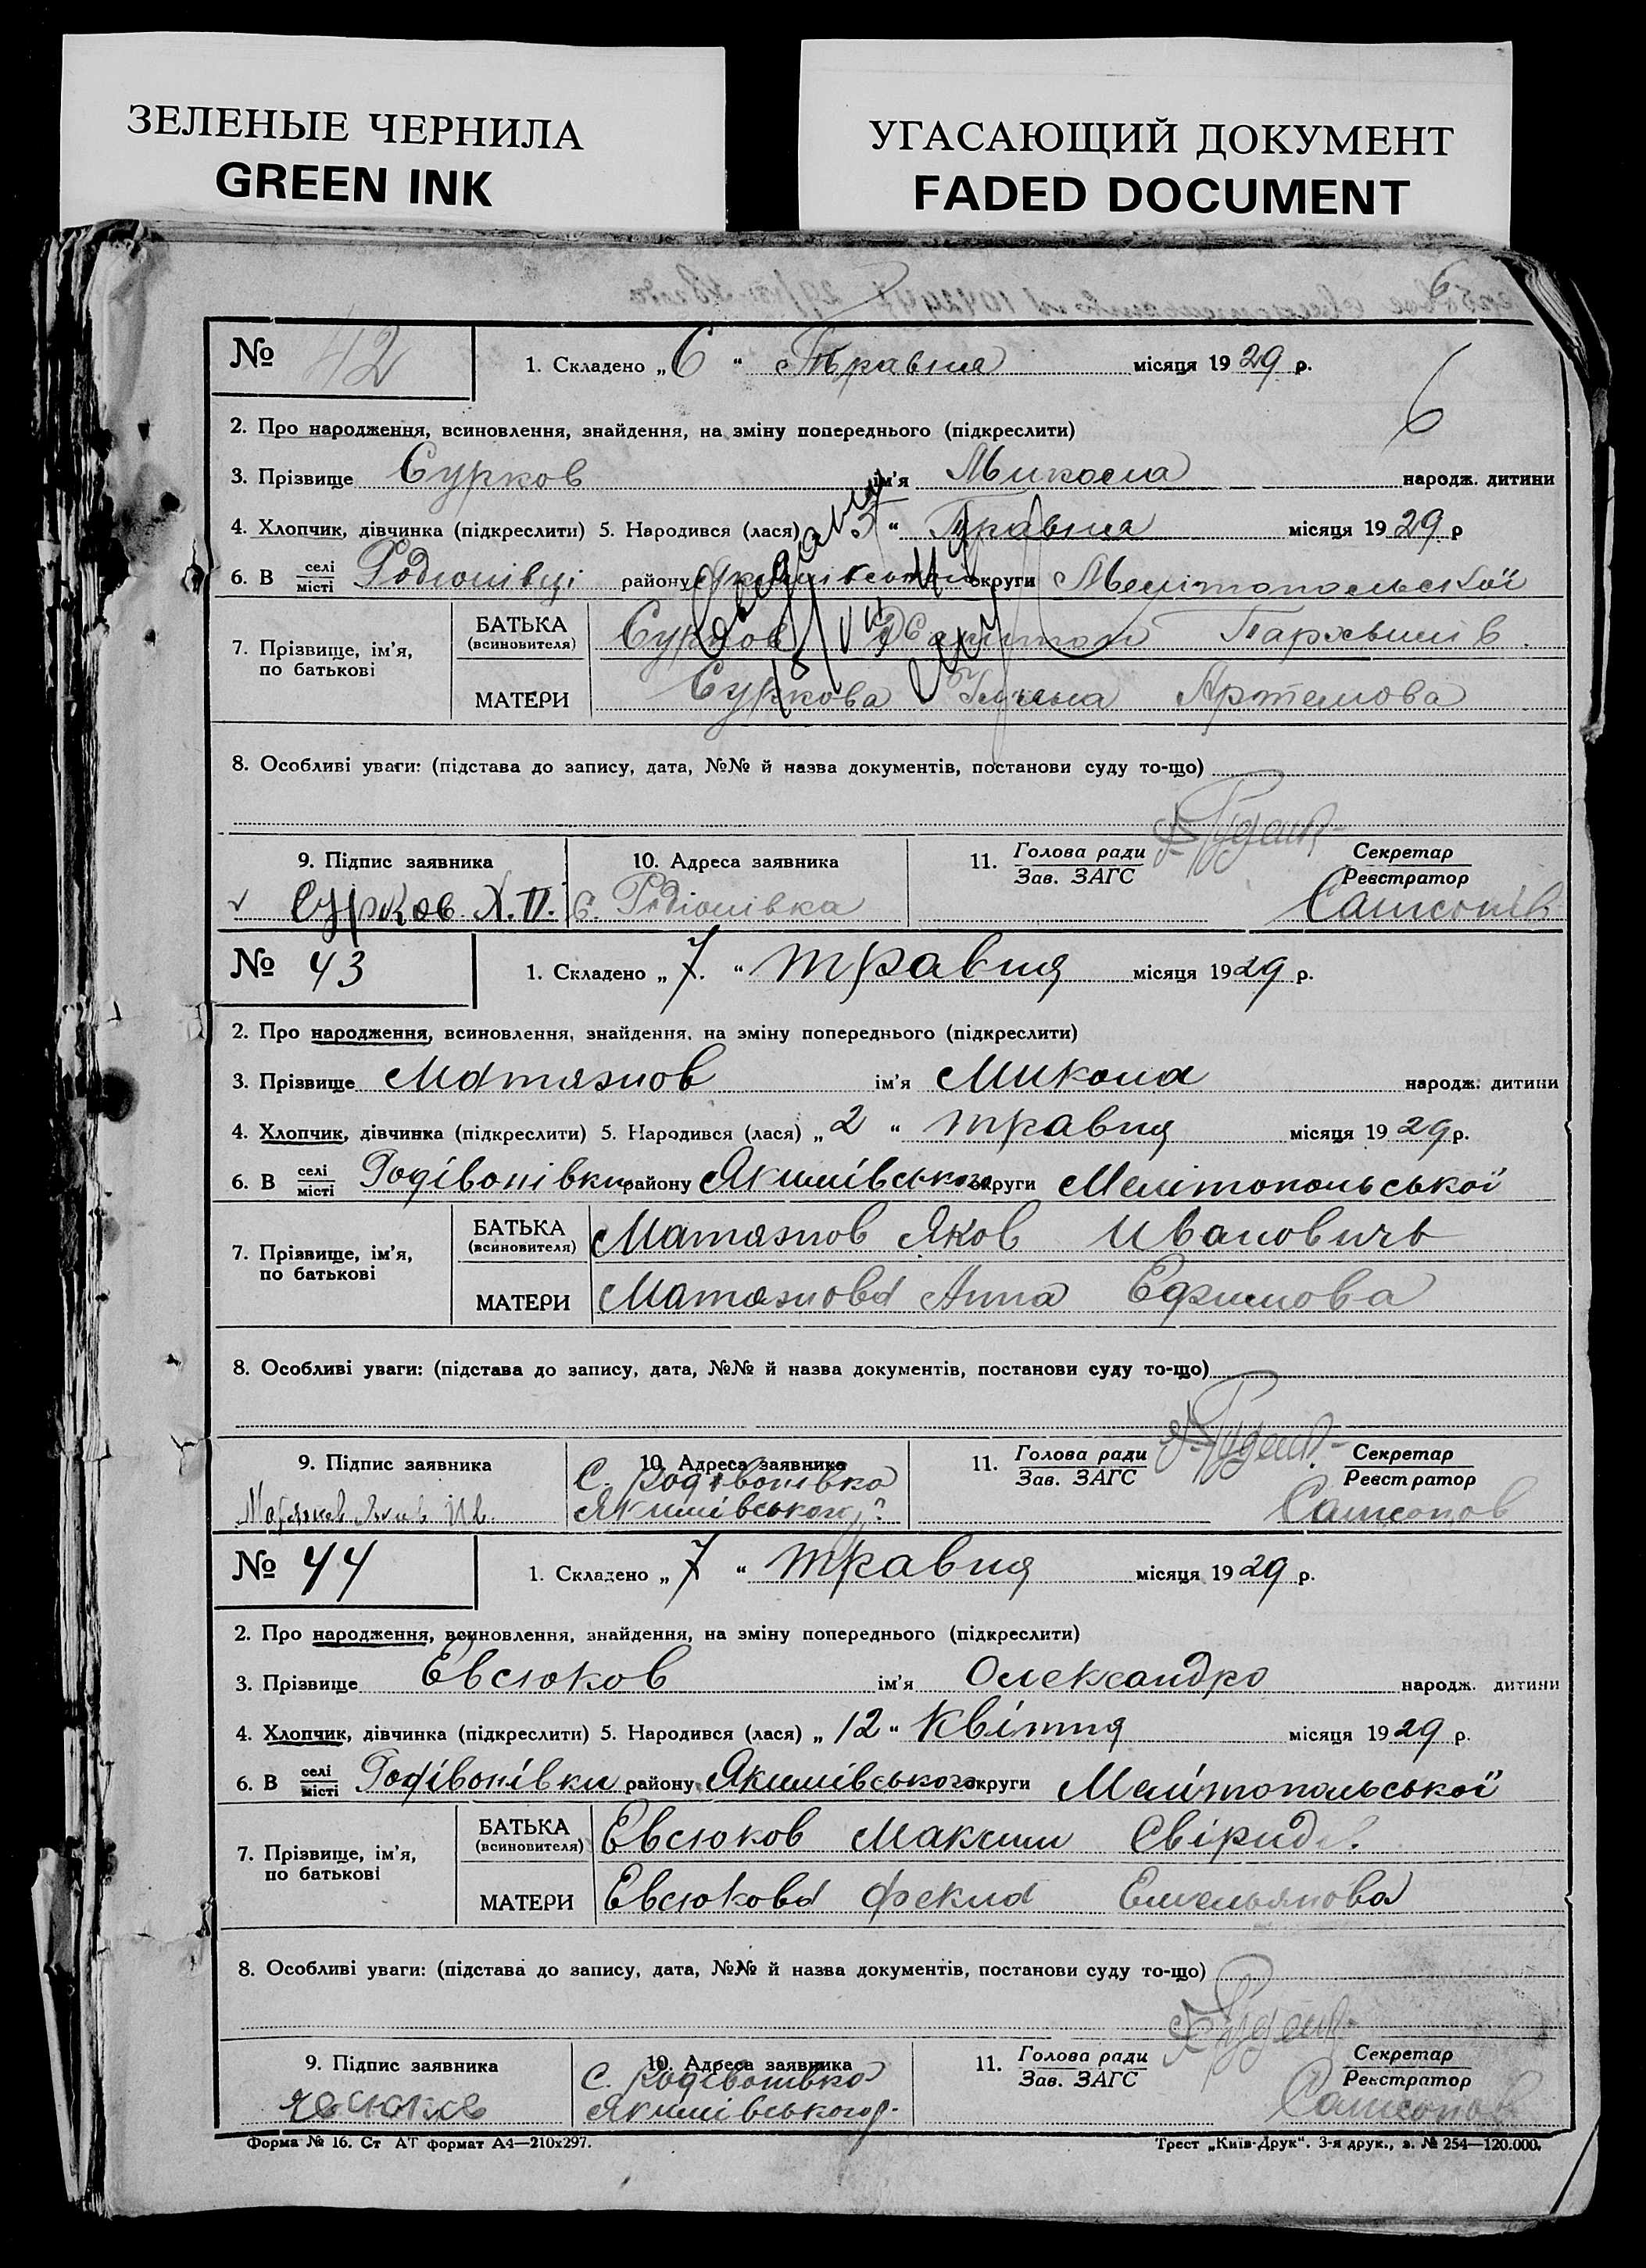 ЗЕЛЕНЫЕ ЧЕРНИЛА
GREEN INK
УГАСАЮЩИЙ ДОКУМЕНТ
FADED DOCUMENT
6
№ 42
1. Складено „6“ Травня місяця 1929 р.
6
2. Про народження, всиновлення, знайдення, на зміну попереднього (підкреслити)
3. Прізвище Сурков ім'я Микола народж. дитини
4. Хлопчик, дівчинка (підкреслити) 5. Народився (лася) „5“ Травня місяця 1929 р
6. В селі місті Родіонівці району Якимівського округи Мелітопольської
7. Прізвище, ім'я, по батькові
БАТЬКА (всиновителя) Сурков
МАТЕРИ Суркова Артемова
8. Особливі уваги: (підстава до запису, дата, №№ й назва документів, постанови суду то-що)
9. Підпис заявника
10. Адреса заявника
11. Голова ради Зав. ЗАГС
Секретар Реєстратор
Сурков Х. П.
с. Родіонівка
№ 43
1. Складено „7.“ травня місяця 1929 р.
2. Про народження, всиновлення, знайдення, на зміну попереднього (підкреслити)
3. Прізвище ім'я Микола народж. дитини
4. Хлопчик, дівчинка (підкреслити) 5. Народився (лася) „2“ травня місяця 1929 р.
6. В селі місті Родівонівки району Якимівського округи Мелітопольської
7. Прізвище, ім'я, по батькові
БАТЬКА (всиновителя) Яков Ивановичь
МАТЕРИ Анна Ефимова
8. Особливі уваги: (підстава до запису, дата, №№ й назва документів, постанови суду то-що)
9. Підпис заявника
10. Адреса заявника
11. Голова ради Зав. ЗАГС
Секретар Реєстратор
С. Родівонівка
Якимівського р.
Самсонов
№ 44
1. Складено „7“ травня місяця 1929 р.
2. Про народження, всиновлення, знайдення, на зміну попереднього (підкреслити)
3. Прізвище Евсюков ім'я Олександр народж. дитини
4. Хлопчик, дівчинка (підкреслити) 5. Народився (лася) „12“ Квітня місяця 1929 р.
6. В селі місті Родівонівки району Якимівського округи Мелітопольської
7. Прізвище, ім'я, по батькові
БАТЬКА (всиновителя) Евсюков Максим Свірид.
МАТЕРИ Евсюкова Фекла Емельянова
8. Особливі уваги: (підстава до запису, дата, №№ й назва документів, постанови суду то-що)
9. Підпис заявника
10. Адреса заявника
11. Голова ради Зав. ЗАГС
Секретар Реєстратор
С. Родівонівка
Якимівського р.
Самсонов
Форма № 16. Ст АТ формат А4—210х297.
Трест „Київ-Друк“. 3-я друк., з. № 254—120.000.